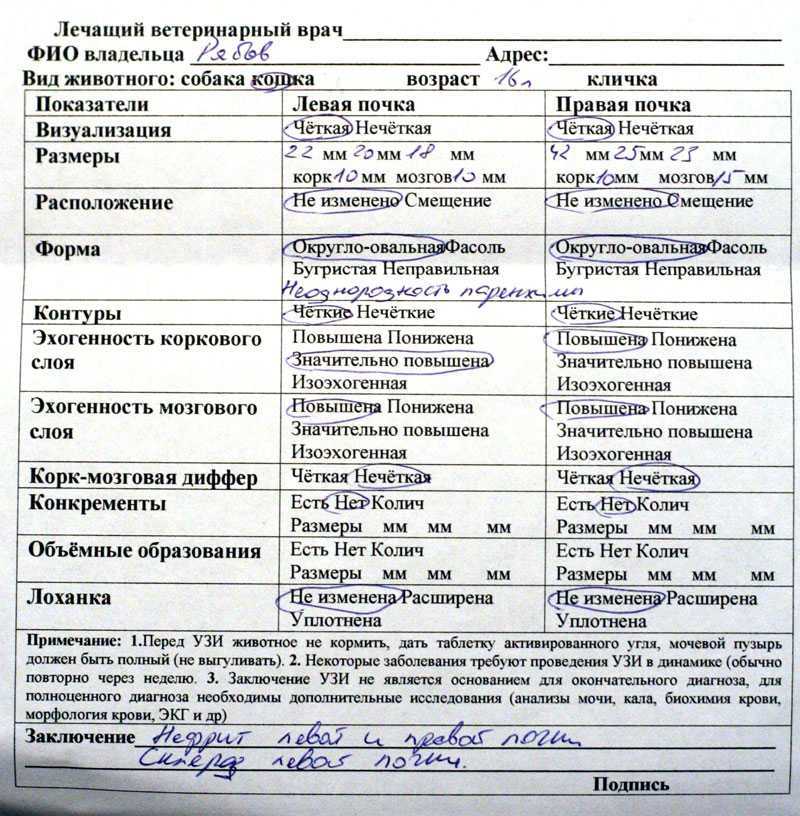 Лечащий ветеринарный врач
ФИО владельца Рябов Адрес:
Вид животного: собака кошка возраст 16 л кличка
Показатели Левая почка Правая почка
Визуализация Чёткая Нечёткая Чёткая Нечёткая
Размеры 22 мм 20 мм 18 мм 42 мм 25 мм 23 мм
корк 10 мм мозгов 10 мм корк 10 мм мозгов 15 мм
Расположение Не изменено Смещение Не изменено Смещение
Форма Округло-овальная Фасоль Округло-овальная Фасоль
Бугристая Неправильная Бугристая Неправильная
Неоднородность паренхимы
Контуры Чёткие Нечёткие Чёткие Нечёткие
Эхогенность коркового Повышена Понижена Повышена Понижена
слоя Значительно повышена Значительно повышена
Изоэхогенная Изоэхогенная
Эхогенность мозгового Повышена Понижена Повышена Понижена
слоя Значительно повышена Значительно повышена
Изоэхогенная Изоэхогенная
Корк-мозговая диффер Чёткая Нечёткая Чёткая Нечёткая
Конкременты Есть Нет Колич Есть Нет Колич
Размеры мм мм мм Размеры мм мм мм
Объёмные образования Есть Нет Колич Есть Нет Колич
Размеры мм мм мм Размеры мм мм мм
Лоханка Не изменена Расширена Не изменена Расширена
Уплотнена Уплотнена
Примечание: 1.Перед УЗИ животное не кормить, дать таблетку активированного угля, мочевой пузырь
должен быть полный (не выгуливать). 2. Некоторые заболевания требуют проведения УЗИ в динамике (обычно
повторно через неделю. 3. Заключение УЗИ не является основанием для окончательного диагноза, для
полноценного диагноза необходимы дополнительные исследования (анализы мочи, кала, биохимия крови,
морфология крови, ЭКГ и др)
Заключение Нефрит левой и правой почки
Склероз левой почки.
Подпись